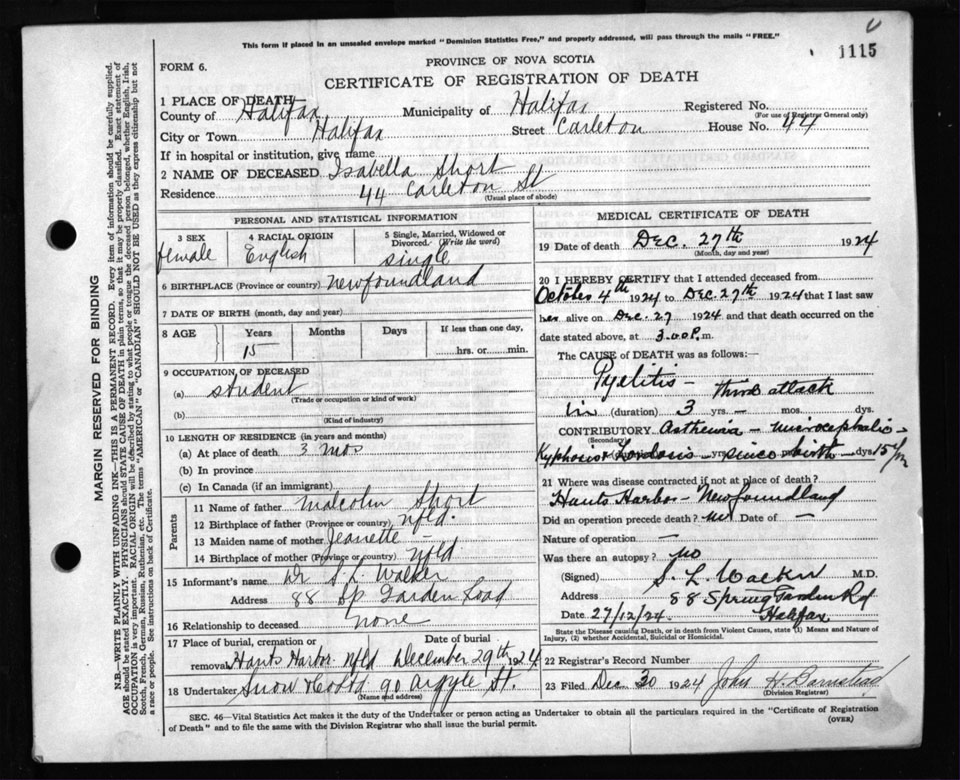 This form if placed in an unsealed envelope marked "Dominion Statistics Free," and properly addressed, will pass through the mails "FREE."
1115
FORM 6.
PROVINCE OF NOVA SCOTIA
CERTIFICATE OF REGISTRATION OF DEATH
1 PLACE OF DEATH
County of Halifax Municipality of Halifax Registered No.
(For use of Registrar General only)
City or Town Halifax Street Carleton House No. 44
If in hospital or institution, give name
2 NAME OF DECEASED Isabella Short
Residence 44 Carleton St
(Usual place of abode)
MARGIN RESERVED FOR BINDING
N.B.—WRITE PLAINLY WITH UNFADING INK—THIS IS A PERMANENT RECORD. Every item of information should be carefully supplied.
AGE should be stated EXACTLY. PHYSICIANS should STATE CAUSE OF DEATH in plain terms, so that it may be properly classified. Exact statement of
OCCUPATION is very important. RACIAL ORIGIN will be described by stating to what people or tongue the deceased person belonged, whether English, Irish,
Scotch, French, German, Russian, Ruthenian, etc. The terms "AMERICAN" or "CANADIAN" SHOULD NOT BE USED as they express citizenship but not
a race or people. See instructions on back of Certificate.
PERSONAL AND STATISTICAL INFORMATION
3 SEX
female
4 RACIAL ORIGIN
English
5 Single, Married, Widowed or
Divorced. (Write the word)
single
6 BIRTHPLACE (Province or country) Newfoundland
7 DATE OF BIRTH (month, day and year)
8 AGE Years Months Days If less than one day,
15 hrs. or min.
9 OCCUPATION OF DECEASED
(a) student
(Trade or occupation or kind of work)
(b)
(Kind of industry)
10 LENGTH OF RESIDENCE (in years and months)
(a) At place of death 3 mos
(b) In province
(c) In Canada (if an immigrant)
Parents
11 Name of father Malcolm Short
12 Birthplace of father (Province or country) Nfld.
13 Maiden name of mother Jeanette
14 Birthplace of mother (Province or country) Nfld
15 Informant's name Dr S. L. Walker
Address 88 Sp Garden Road
16 Relationship to deceased None
17 Place of burial, cremation or Date of burial
removal Hants Harbor Nfld December 29th 1924
18 Undertaker Snow & Co Ltd 90 Argyle St.
(Name and address)
MEDICAL CERTIFICATE OF DEATH
19 Date of death Dec. 27th 1924
(Month, day and year)
20 I HEREBY CERTIFY that I attended deceased from
October 4th 1924 to Dec. 27th 1924 that I last saw
her alive on Dec. 27 1924 and that death occurred on the
date stated above, at 3.00 P. m.
The CAUSE of DEATH was as follows:—
Pyelitis — third attack
(duration) 3 yrs. — mos. dys.
CONTRIBUTORY Asthenia - microcephalic -
(Secondary)
Kyphosis & Lordosis - since birth - dys 15 yrs
21 Where was disease contracted if not at place of death?
Hants Harbor - Newfoundland
Did an operation precede death? no Date of —
Nature of operation —
Was there an autopsy? No
(Signed) S. L. Walker M.D.
Address 88 Spring Garden Rd
Date 27/12/24 Halifax
State the Disease causing Death, or in death from Violent Causes, state (1) Means and Nature of
Injury, (2) whether Accidental, Suicidal or Homicidal.
22 Registrar's Record Number
23 Filed Dec 30 1924 John H. Barnstead
(Division Registrar)
SEC. 46—Vital Statistics Act makes it the duty of the Undertaker or person acting as Undertaker to obtain all the particulars required in the "Certificate of Registration
of Death" and to file the same with the Division Registrar who shall issue the burial permit.
(OVER)